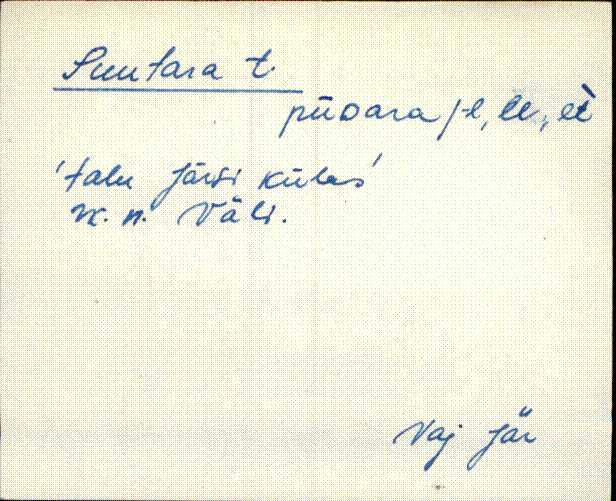 Suutara t.
püoara /-l, le, èt
'talu Järsi külas'
rk. n. Väli.
Vaj Jär